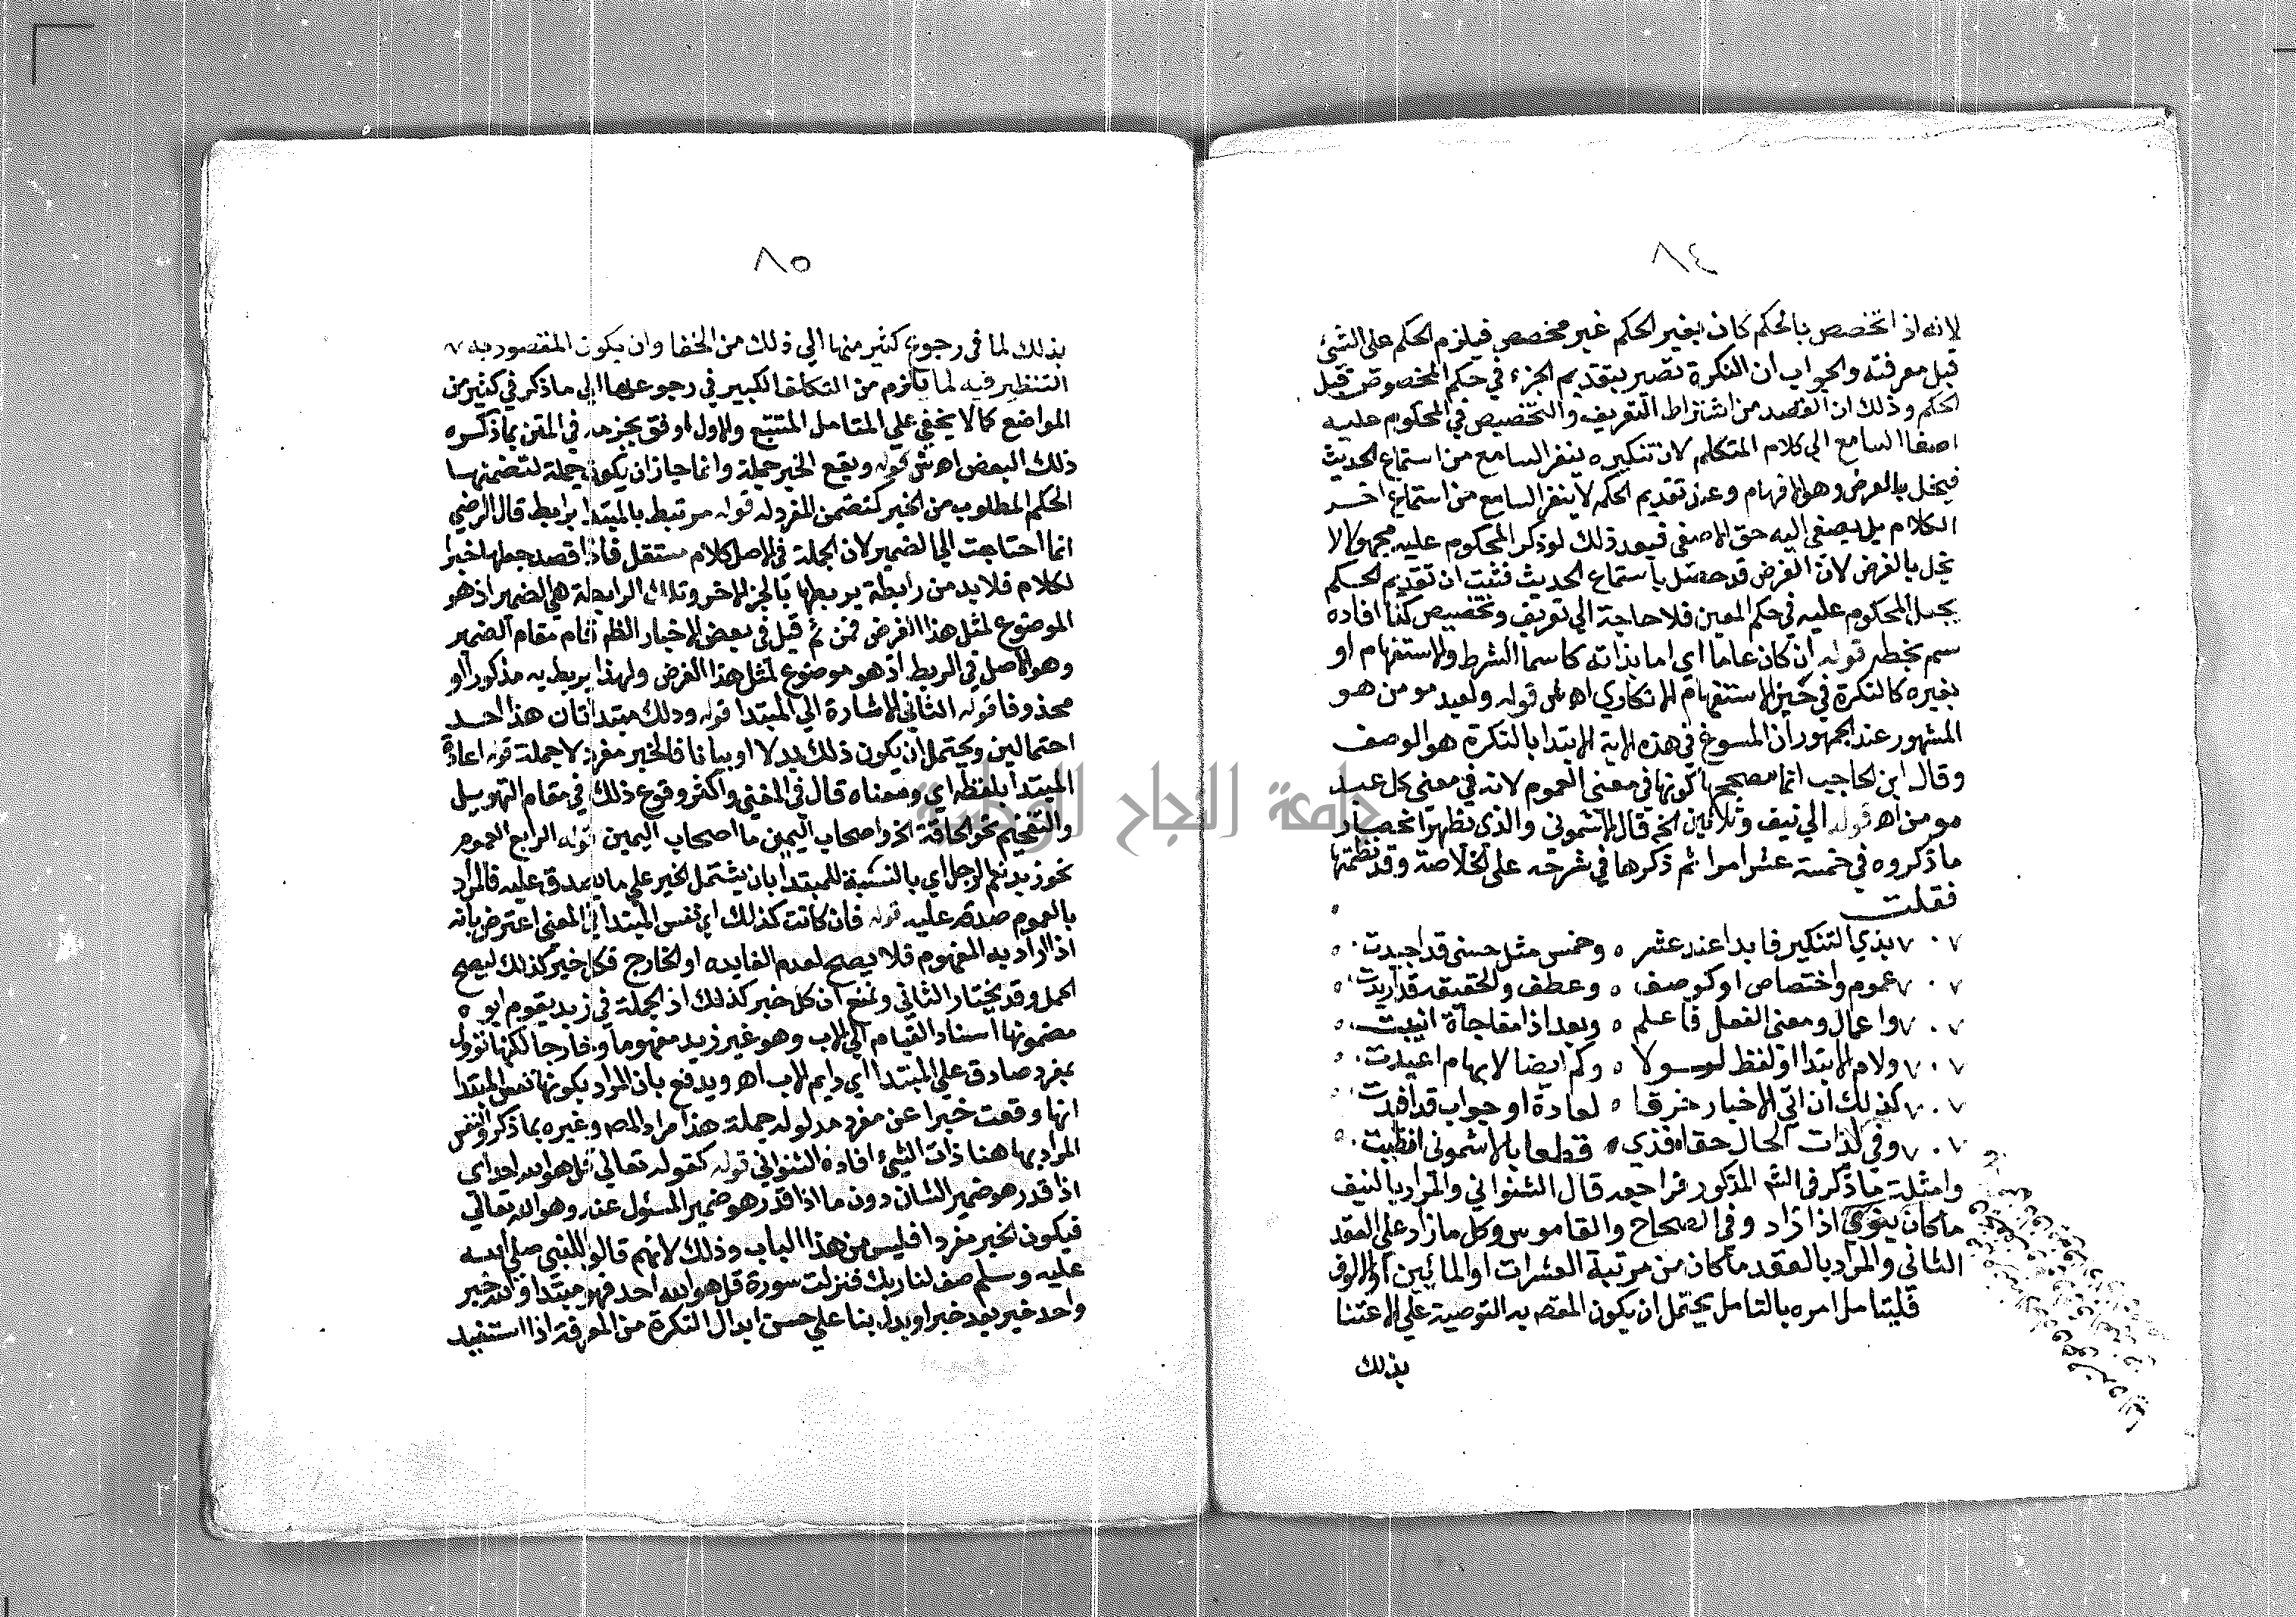 ٨٤
لانه اذا تخصص بالحكم كان بغير الحكم غير مخصص فيلزم الحكم على الشئ
قبل معرفته والجواب ان النكرة تصير بتقديم الجزء في حكم المخصوص قبل
الحكم وذلك ان القصد من اشتراط التعريف والتخصيص في المحكوم عليه
اصغا السامع الي كلام المتكلم لان تنكيره ينفر السامع من استماع الحديث
فيخل بالغرض وهو الافهام وعند تقديم الحكم لا ينفر السامع من استماع اخر
الكلام بل يصغي اليه حق الاصغى فبعد ذلك لو ذكر المحكوم عليه مجهولا لا
يخل بالغرض لان الغرض قد حصل باستماع الحديث فثبت ان تقديم الحكم
يجعل المحكوم عليه في حكم المعين فلا حاجة الي تعريف وتخصيص كذا افاده
سم بخطه قوله ان كان عاما اي اما بذاته كاسما الشرط والاستفهام او
بغيره كالنكرة في حيز الاستفهام الانكاري اه قوله ولعبد مومن هو
المشهور عند الجمهور ان المسوغ في هذه الاية الابتدا بالنكرة هو الوصف
وقال ابن الحاجب انما مصححها كونها في معنى العموم لانه في معنى كل عبد
مومن اه قوله الي نيف وثلاثين الخ قال الاشموني والذي يظهر انحصار
ما ذكروه في خمسة عشر امرا ثم ذكرها في شرحه على الخلاصة وقد نظمتها
فقلت
بذي التنكير فابدا عند عشر ه وخمس مثل حسنى قد اجيدت
عموم واختصاص او كوصف ه وعطف والحقيقه قد اريدت
واعمال ومعنى الفعل فاعلم ه وبعد اذا مفاجآة
ولام الابتدا او لفظ لولا ه وكم ايضا لابهام اعيدت
كذلك ان اتي الاخبار خرقا ه لعادة او جواب قد افيدت
وفي لذات الحال حقا فذي ه قطعا بالاشموني
وامثلة ما ذكر في الشرح المذكور فراجعه قال الشنواني والمراد بالنيف
ما كان ينوي اذا زاد وفي الصحاح والقاموس وكل ما زاد على العقد
الثاني والمراد بالعقد ما كان من مرتبة العشرات او المائيين او الالوف
فليتامل امره بالتامل يحتمل ان يكون المقص به التوصية علي الاعتنا
بذلك
٨٥
بذلك لما في رجوع كثير منها الي ذلك من الخفا وان يكون المقصود به
التنظير فيه لما يلزم من التكلف الكبير في رجوعها الي ما ذكر في كثير من
المواضع كما لا يخفي علي المتامل المتتبع والاول اوفق بجزمه في المتن بما ذكره
ذلك البعض اه ش قوله ويقع الخبر جملة وانما جاز ان يكون جملة لتضمنها
الحكم المطلوب من الخبر كتضمن المفرد له قوله مرتبط بالمبتدا برابط قال الرضي
انما احتاجت الي الضمير لان الجملة في الاصل كلام مستقل فاذا قصد جعلها خبرا
لكلام فلا بد من رابطة يربطها بالجزء الاخر وتلك الرابطة هي الضمير اذ هو
الموضوع لمثل هذا الغرض فمن ثم قيل في بعض الاخبار الظه قام مقام الضمير
وهو الاصل في الربط اذ هو موضوع لمثل هذا الغرض ولهذا يربط به مذكورا او
محذوفا قوله الثاني الاشارة الي المبتدا قوله وذلك مبتدا ثان هذا احد
احتمالين ويحتمل ان يكون ذلك بدلا او بيانا فالخبر مفرد لا جملة قوله اعادة
المبتدا بلفظه اي ومعناه قال في المغني واكثر وقوع ذلك في مقام التهويل
والتفخيم نحو الحاقة الخ واصحاب اليمين ما اصحاب اليمين قوله الرابع العموم
نحو زيد نعم الرجل اي بالنسبة للمبتدا بان يشتمل الخبر علي ما يصدق عليه فالمراد
بالعموم صدقه عليه قوله فان كانت كذلك اي نفس المبتدا في المعنى اعترض بانه
اذا اراد به المفهوم فلا يصح لعدم الفايده او الخارج فكل خبر كذلك ليصح
الحمل وقد يختار الثاني ونمنع ان كل خبر كذلك اذ الجملة في زيد يقوم ابوه
مضمونها اسناد القيام الي الاب وهو غير زيد مفهوما وخارجا لكنها تؤول
بمفرد صادق علي المبتدا اي دايم الاب اه ويدفع بان المراد بكونها نفس المبتدا
انها وقعت خبرا عن مفرد مدلوله جملة هذا مراد المصه وغيره بما ذكر والنفس
المراد بها هنا ذات الشئ افاده الشنواني قوله كقوله تعالي قل هو الله احد اي
اذا قدر هو ضمير الشان دون ما اذا قدر هو ضمير المسئول عنه وهو الله تعالي
فيكون الخبر مفردا فليس من هذا الباب وذلك لانهم قالوا للنبي صلي الله
عليه وسلم صف لنا ربك فنزلت سورة قل هو الله احد فهو مبتدا والله خبر
واحد خبر بعد خبر او بدل بنا علي حسن ابدال النكرة من المعرفة اذا استفيد
جامعة النجاح الوطنية